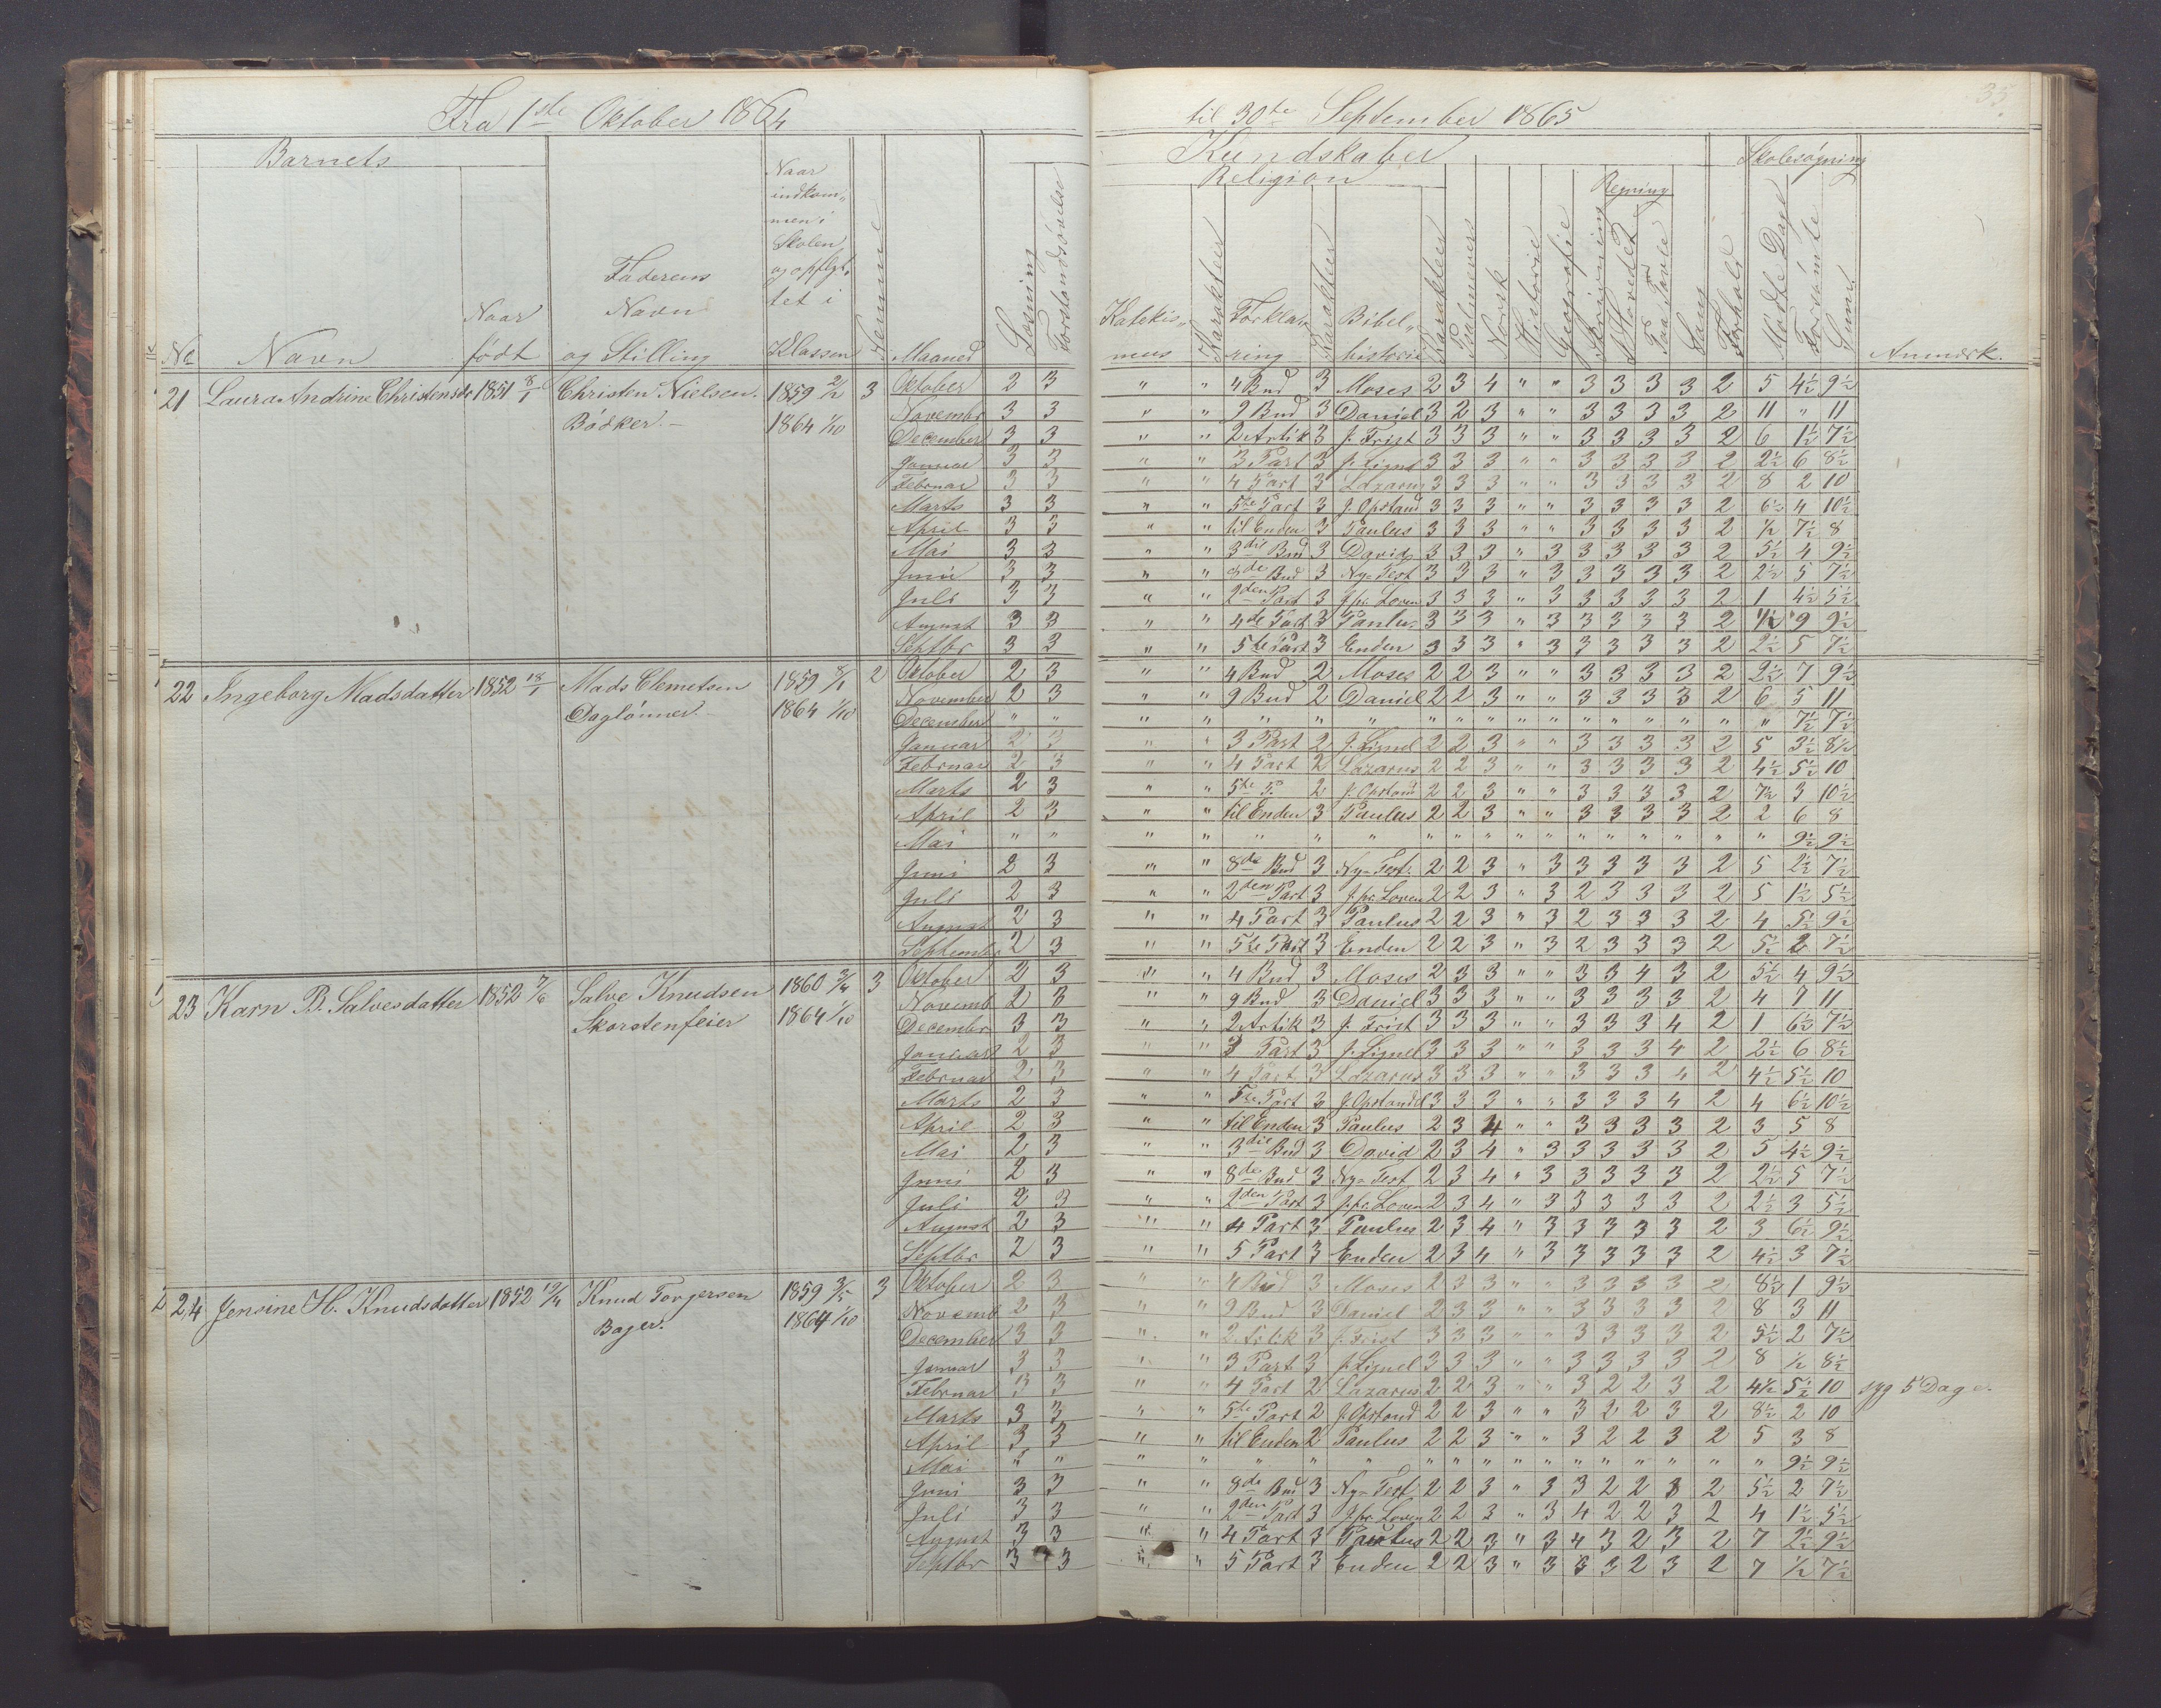 Fra 1ste Oktober 1864 til 30te September 1865
35.
Barnets
Kundskaber
Skolesøgning
Religion
Regning
No Navn Naar født Faderens Navn og Stilling Naar indkommen i Skolen og opflyttet i Klassen Maaned Læsning Forstandsøvelse
Katekismus Karakter Forklaring Karakter Bibelhistorie Karakter Psalmevers Norsk Historie Geografie Skrivning I Hovedet Paa Tavle Sang Forhold Mødte Dage Forsømte Summa Anmærk.
21 Laura Andrine Christensdr 1851 8/1 Christen Nielsen. 1859 2/12 3 Oktober 2 3 " " 4 Bud 3 Moses 2 3 4 " " 3 3 3 3 2 5 4½ 9½
Bødker. 1864 1/10 Novembr 3 3 " " 9 Bud 3 Daniel 3 2 3 " " 3 3 3 3 2 11 " 11
December 3 3 " " 2 Artik 3 J. Frist 3 3 3 " " 3 3 3 3 2 6 1½ 7½
Januar 3 3 " " 3 Part 3 J. Lignel 3 3 3 " " 3 3 3 3 2 2½ 6 8½
Februar 3 3 " " 4 Part 3 Lazarus 3 3 3 " " 3 3 3 3 2 8 2 10
Marts 3 3 " " 5te Part 3 J. Opstand 3 3 3 " " 3 3 3 3 2 6½ 4 10½
April 3 3 " " til Enden 3 Paulus 3 3 3 " " 3 3 3 3 2 ½ 7½ 8
Mai 3 3 " " 3die Bud 3 David 3 3 3 " 3 3 3 3 3 2 5½ 4 9½
Juni 3 3 " " 8de Bud 3 Ny-Test 3 3 3 " 3 3 3 3 3 2 2½ 5 7½
Juli 3 3 " " 2den Part 3 J. fr. Loven 3 3 3 " 3 3 3 3 3 2 1 4½ 5½
August 3 3 " " 4de Part 3 Paulus 3 3 3 " 3 3 3 3 3 2 ½ 9 9½
Septbr 3 3 " " 5te Part 3 Enden 3 3 3 " 3 3 3 3 3 2 2½ 5 7½
22 Ingeborg Madsdatter 1852 18/1 Mads Clemetsen 1859 8/1 2 Oktober 2 3 " " 4 Bud 2 Moses 2 2 3 " " 3 3 3 3 2 2½ 7 9½
Daglønner 1864 1/10 November 2 3 " " 9 Bud 2 Daniel 2 2 3 " " 3 3 3 3 2 6 5 11
December " " " " " " " " " " " " " " " " " " 7½ 7½
Januar 2 3 " " 3 Part 2 J. Lignel 2 2 3 " " 3 3 3 3 2 5 3½ 8½
Februar 2 3 " " 4 Part 2 Lazarus 2 2 3 " " 3 3 3 3 2 4½ 5½ 10
Marts 2 3 " " 5te P. 2 J. Opstand 2 2 3 " " 3 3 3 3 2 7½ 3 10½
April 2 3 " " til Enden 3 Paulus 2 2 3 " " 3 3 3 3 2 2 6 8
Mai " " " " " " " " " " " " " " " " " " 9½ 9½
Juni 2 3 " " 8de Bud 3 Ny-Test. 2 2 3 " 3 3 3 3 3 2 5 2½ 7½
Juli 2 3 " " 2den Part 3 J. fr. Loven 2 2 3 " 3 2 3 3 3 2 5 1½ 5½
August 2 3 " " 4 Part 3 Paulus 2 2 3 " 3 2 3 3 3 2 4 5½ 9½
September 2 3 " " 5te Part 3 Enden 2 2 3 " 3 2 3 3 3 2 5½ 2 7½
23 Karn B. Salvesdatter 1852 7/6 Salve Knudsen 1860 3/4 3 Oktober 2 3 " " 4 Bud 3 Moses 2 3 3 " " 3 3 4 3 2 5½ 4 9½
Skorstenfeier 1864 1/10 Novemb 2 3 " " 9 Bud 3 Daniel 3 3 3 " " 3 3 3 3 2 4 7 11
Decembr 3 3 " " 2 Artik 3 J. Frist 3 3 3 " " 3 3 3 4 2 1 6½ 7½
Januar 2 3 " " 3 Part 3 J. Lignel 3 3 3 " " 3 3 3 4 2 2½ 6 8½
Februar 2 3 " " 4 Part 3 Lazarus 3 3 3 " " 3 3 3 4 2 4½ 5½ 10
Marts 2 3 " " 5te Part 3 J. Opstandel 3 3 3 " " 3 3 3 4 2 4 6½ 10½
April 2 3 " " til Enden 3 Paulus 2 3 4 " " 3 3 3 3 2 3 5 8
Mai 2 3 " " 3die Bud 3 David 2 3 4 " 3 3 3 3 3 2 5 4½ 9½
Juni 2 3 " " 8de Bud 3 Ny-Test 2 3 4 " 3 3 3 3 3 2 2½ 5 7½
Juli 2 3 " " 2den Part 3 J. fr. Loven 2 3 4 " 3 3 3 3 3 2 2½ 3 5½
August 2 3 " " 4 Part 3 Paulus 2 3 4 " 3 3 3 3 3 2 3 6½ 9½
Septbr 2 3 " " 5 Part 3 Enden 2 3 4 " 3 3 3 3 3 2 4½ 3 7½
24 Jensine H. Knudsdatter 1852 Knud Torgersen 1859 3/5 3 Oktober 2 3 " " 4 Bud 3 Moses 2 3 3 " " 3 3 3 3 2 8½ 1 9½
Bager. 1864 1/10 Novemb 2 3 " " 9 Bud 3 Daniel 2 3 3 " " 3 3 3 3 2 8 3 11
December 3 3 " " 2 Artik 3 J. Frist 3 3 3 " " 3 3 3 3 2 5½ 2 7½
Januar 3 3 " " 3 Part 3 J. Lignel 3 3 3 " " 3 3 3 3 2 8 ½ 8½
Februar 3 3 " " 4 Part 2 Lazarus 2 2 3 " " 3 2 2 3 2 4½ 5½ 10 syg 5 Dage.
Marts 3 3 " " 5te Part 2 J. Opstand 2 2 3 " " 3 2 2 3 2 8½ 2 10
April 3 3 " " til Enden 2 Paulus 2 2 3 " " 3 2 2 3 2 5 3 8
Mai " " " " " " " " " " " " " " " " " " 9½ 9½
Juni 3 3 " " 8de Bud 3 Ny-Test 2 2 3 " 3 3 2 2 3 2 5½ 2 7½
Juli 3 3 " " 2den Part 3 J. fr. Loven 2 2 3 " 3 4 2 2 3 2 4 1½ 5½
August 3 3 " " 4 Part 3 Paulus 2 2 3 " 3 4 3 2 3 2 7 2½ 9½
Septbr 3 3 " " 5 Part 3 Enden 2 2 3 " 3 3 3 2 3 2 7 ½ 7½